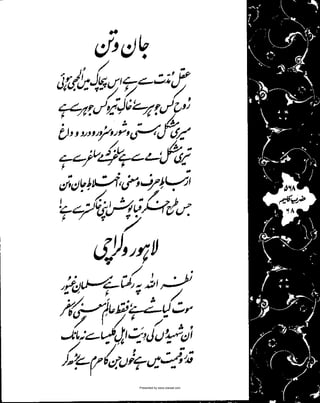 جان و تن
عقل مدت سے ہے اس پیچاک میں الجھی ہوئی
روح کس جوہر سے، خاکِ تیرہ کس جوہر سے ہے
میری مشکل، مستی و شور و سرور و درد و داغ
تیری مشکل، مے سے ہے ساغر کہ مے ساغر سے ہے
ارتباطِ حرف و معنی، اختلاطِ جان و تن
جس طرح اخگر قبا پوش اپنی خاکستر سے ہے!
لاہور و کراچی
نظر اللہ پہ رکھتا ہے مسلمانِ غیور
موت کیا شے ہے، فقط عالمِ معنی کا سفر
ان شہیدوں کی دیت اہلِ کلیسا سے نہ مانگ
قدر و قیمت میں ہے خوں جن کا حرم سے بڑھ کر
۵۶۸
ضربِ کلیم
۶۸